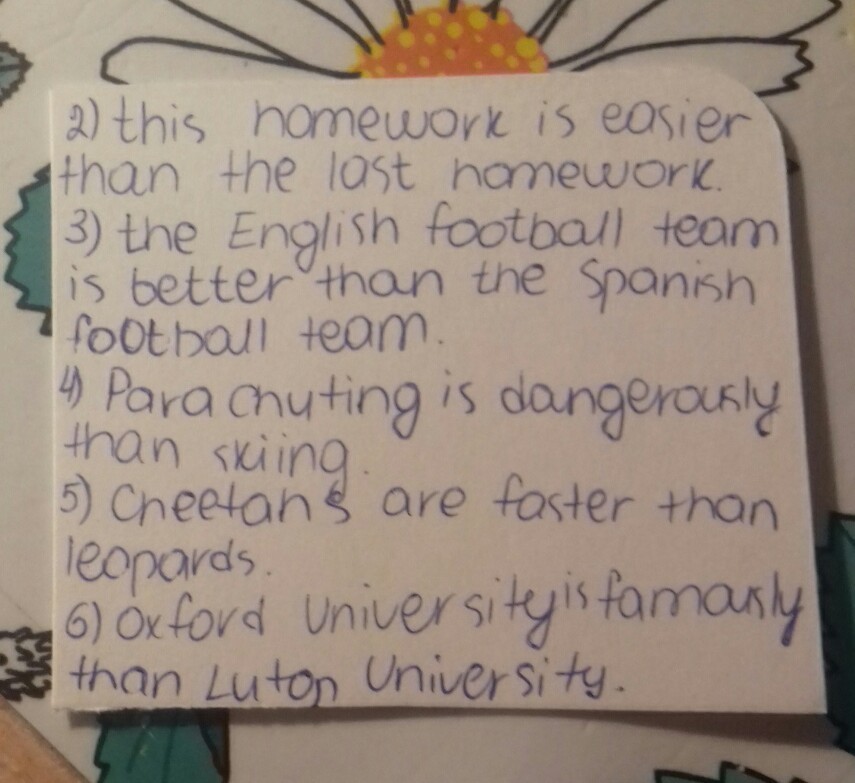 2) this homework is easier
than the last homework.
3) the English football team
is better than the Spanish
football team.
4) Parachuting is dangerously
than skiing.
5) Cheetahs are faster than
leopards.
6) Oxford University is famously
than Luton University.